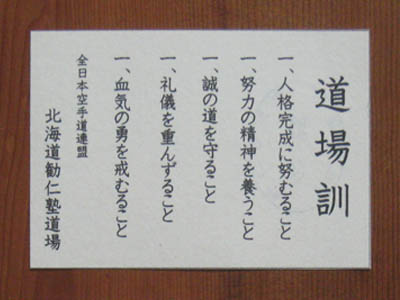 道場訓
一、人格完成に努むること
一、努力の精神を養うこと
一、誠の道を守ること
一、礼儀を重んずること
一、血気の勇を戒むること
全日本空手道連盟
北海道勧仁塾道場